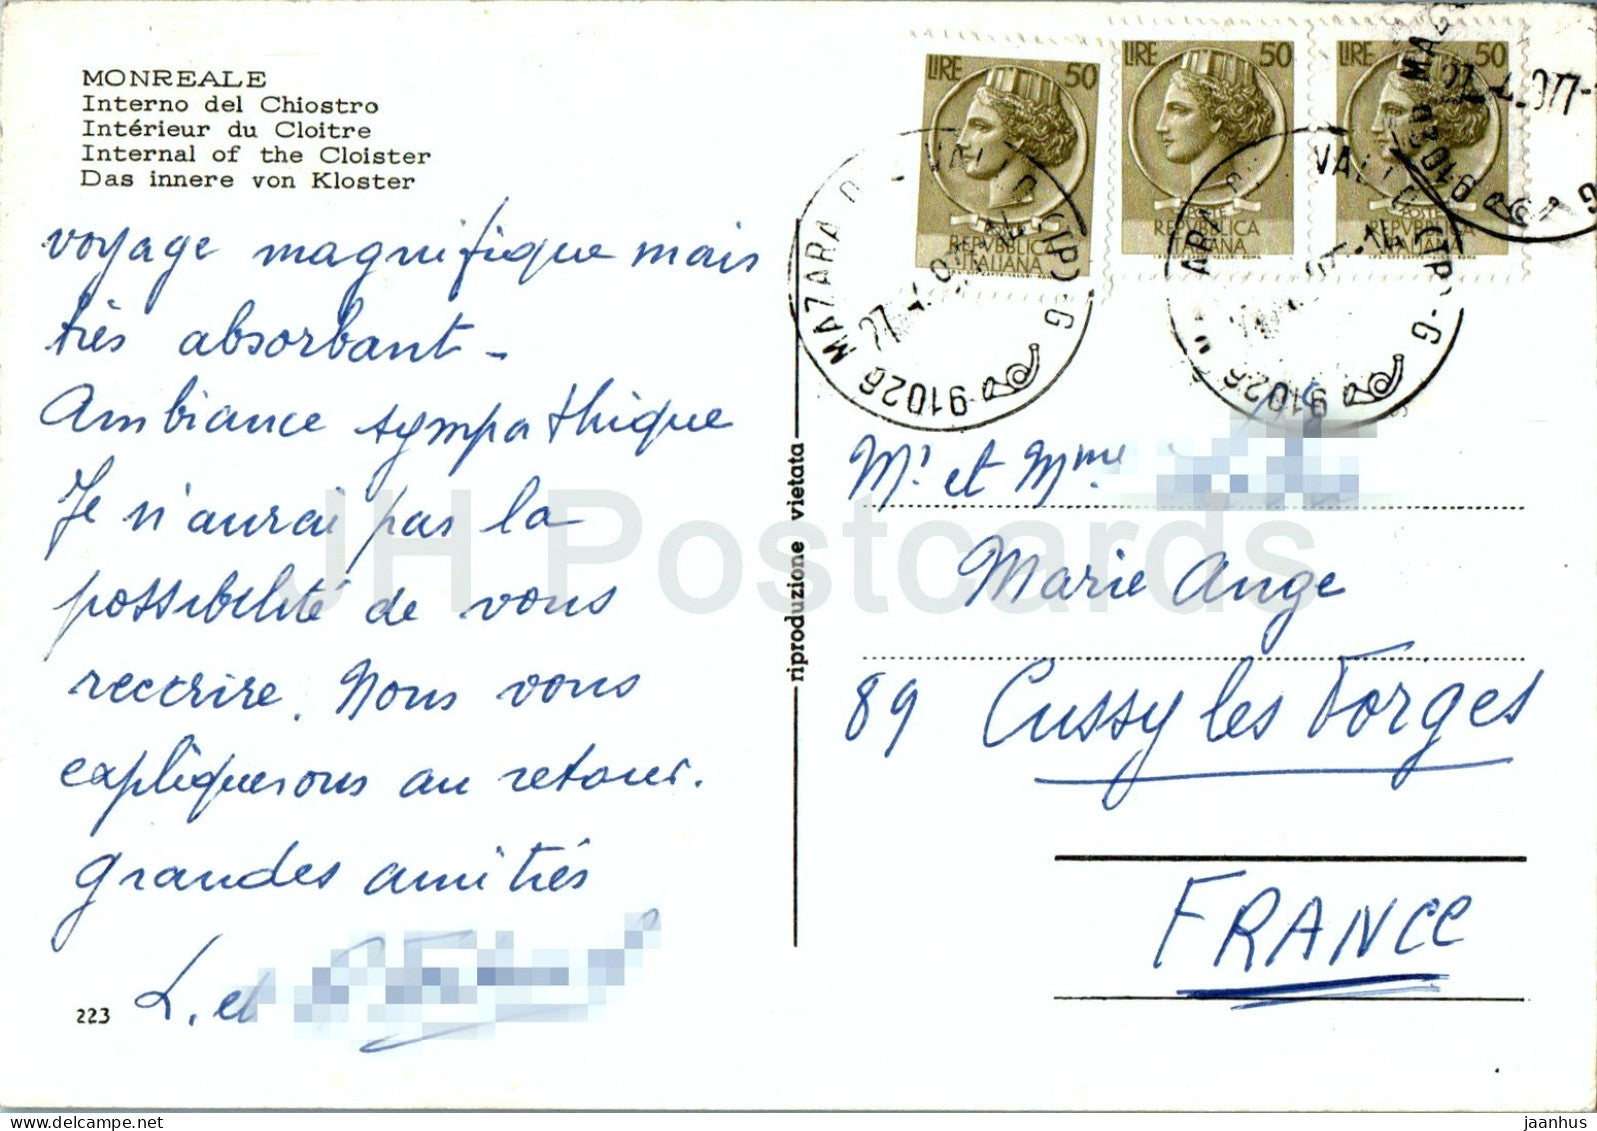 MONREALE
Interno del Chiostro
Intérieur du Cloitre
Internal of the Cloister
Das innere von Kloster
voyage magnifique mais
très absorbant -
Ambiance sympathique
Je n'aurai pas la
possibilité de vous
reccrire. Nous vous
expliquerons au retour.
grandes amitiés
L. et
223
riproduzione vietata
LIRE 50
POSTE
REPVBBLICA
ITALIANA
LIRE 50
POSTE
REPVBBLICA
ITALIANA
LIRE 50
POSTE
REPVBBLICA
ITALIANA
91026 MAZARA D VALLO (TP) - G
91026 VALLO (TP) - G
Mr et Mme
Marie Ange
89 Cussy les Forges
FRANCE
JH Postcards
jaanhus @ delcampe.net